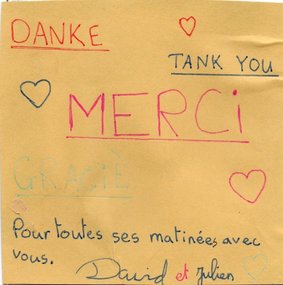 DANKE
TANK YOU
MERCi
GRACiE
Pour toutes ses matinées avec
vous.
David et Julien